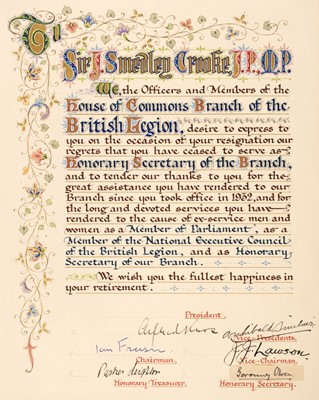 To
Sir J. Smedley Crooke, J.P., M.P.
We, the Officers and Members of the
House of Commons Branch of the
British Legion, desire to express to
you on the occasion of your resignation our
regrets that you have ceased to serve as
Honorary Secretary of the Branch,
and to tender our thanks to you for the
great assistance you have rendered to our
Branch since you took office in 1932, and for
the long and devoted services you have
rendered to the cause of ex-service men and
women as a Member of Parliament, as a
Member of the National Executive Council
of the British Legion, and as Honorary
Secretary of our Branch.
We wish you the fullest happiness in
your retirement.
President.
Vice-President.
Ian Fraser
J. J. Lawson
Chairman.
Vice-Chairman.
Goronwy Owen
Honorary Treasurer.
Honorary Secretary.